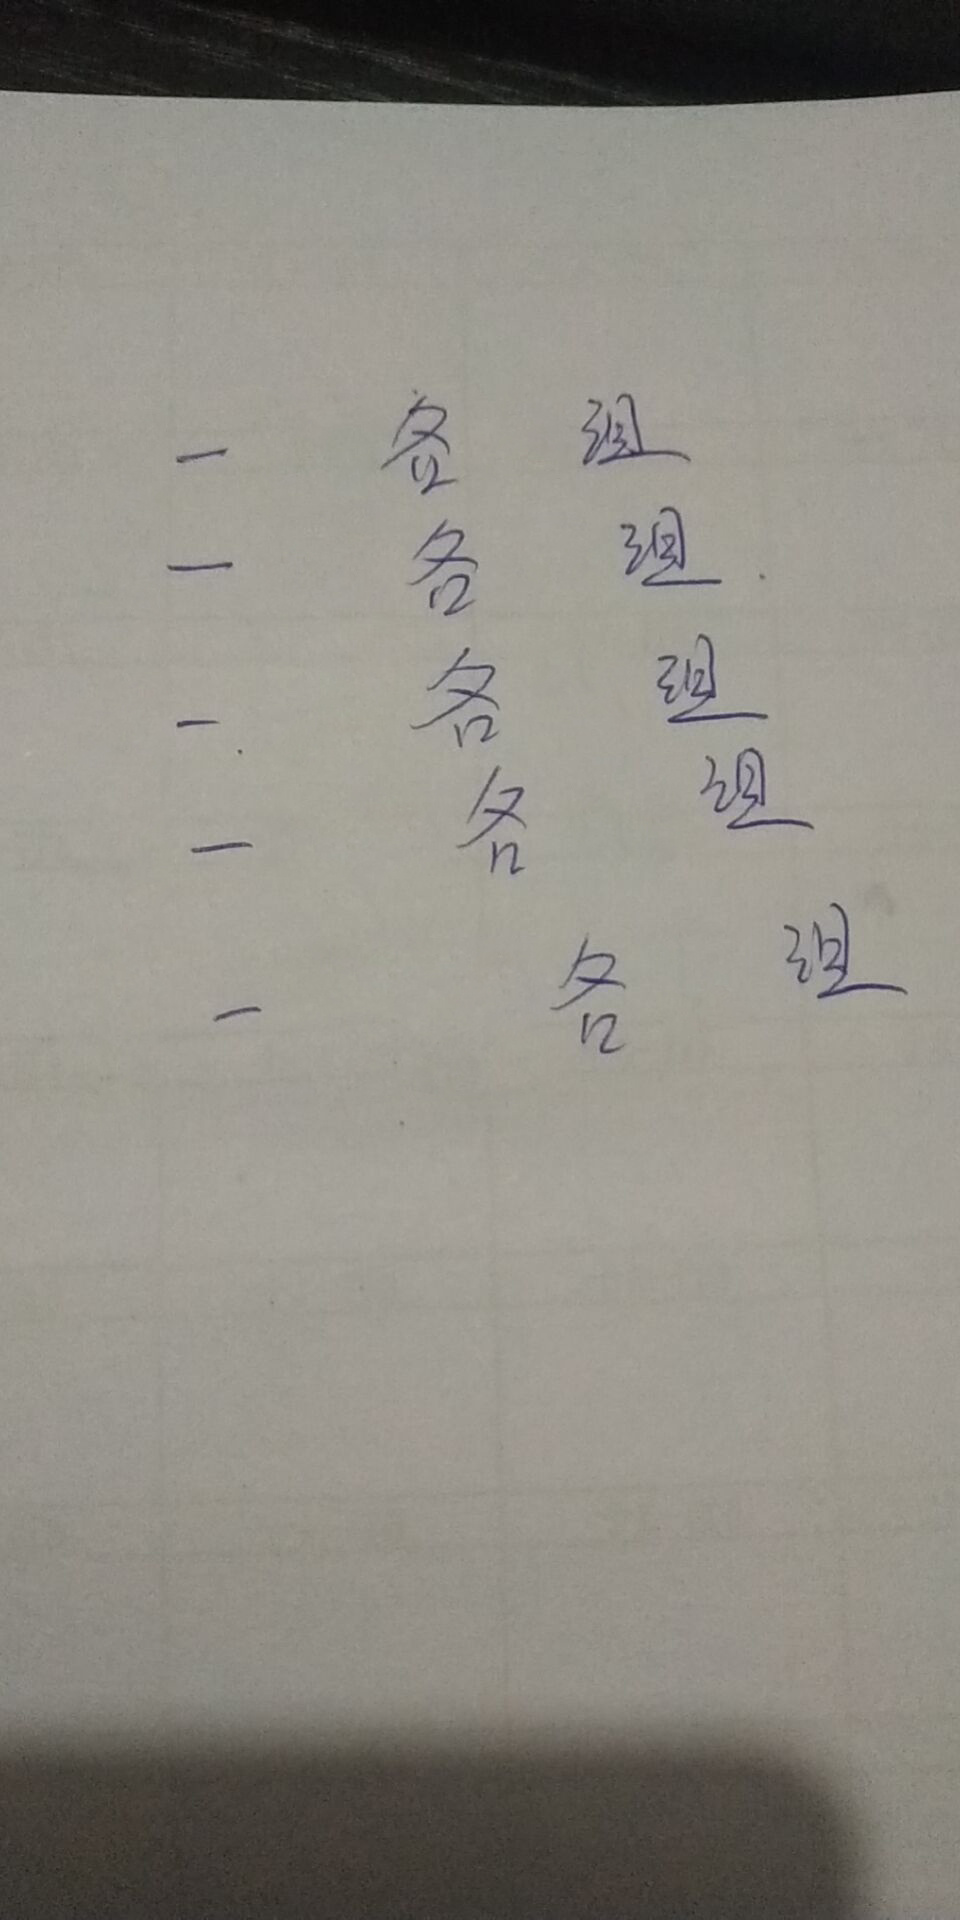 一 各 组
一 各 组
一 各 组
一 各 组
一 各 组